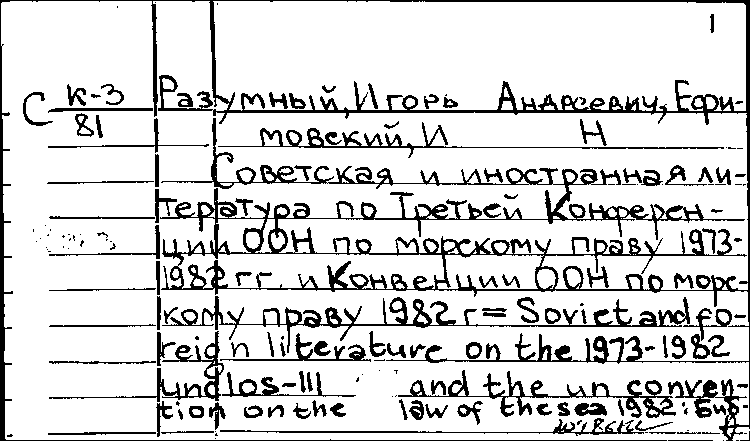 1
С К-3
81
Разумный, Игорь Андреевич, Ефи-
мовский, И Н
Советская и иностранная ли-
тература по Третьей Конферен-
ции ООН по морскому праву 1973-
1982 гг. и Конвенции ООН по морс-
кому праву 1982 г = Soviet and fo-
reign literature on the 1973-1982
unglos-III and the un conven-
tion on the law of the sea 1982: Биб-